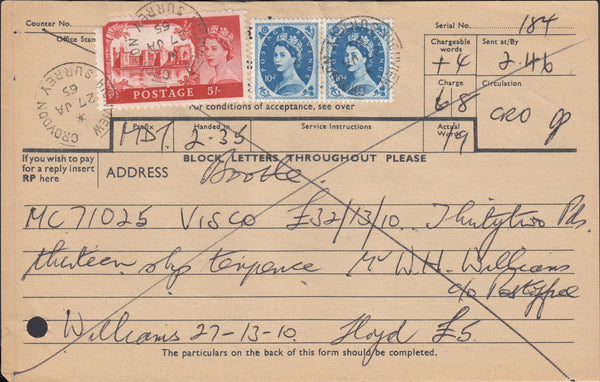 Counter No.
Serial No. 184
Office Stam
Chargeable words +4
Sent at/By 2.46
Charge 6/8
Circulation CRO
POSTAGE 5/-
10D 10D
CROYDON SURREY 27 JA 65
For conditions of acceptance, see over
Prefix Handed in Service Instructions Actual Words
MDT. 2-35 19
If you wish to pay for a reply insert RP here
BLOCK LETTERS THROUGHOUT PLEASE
ADDRESS Bootle.
MC71025 VISCO £32/13/10. Thirtytwo Pds
thirteen shgs tenpence Mr W.H. Williams
c/o Postoffice
Williams 27-13-10. Lloyd £5
The particulars on the back of this form should be completed.